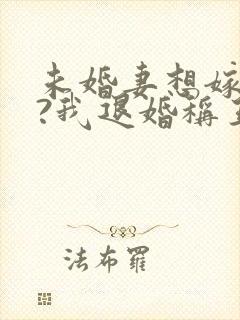 未婚妻想嫁
?我退婚稱
法布羅